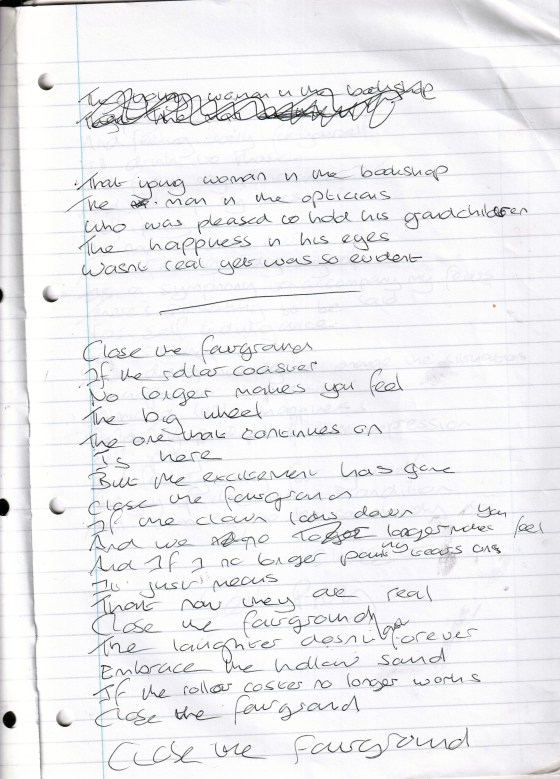 The young woman in the bookshop
That young woman in the bookshop
The man in the opticians
who was pleased to hold his grandchildren
The happiness in his eyes
Wasnt real yet was so evident
Close the fairground
If the rollar coaster
No longer makes you feel
The big wheel
The one that continues on
Is here
But the excitement has gone
Close the fairground
If the clown looks down
And we no longer makes you feel
And If I no longer paint my tears on
It just means
That now they are real
Close the fairground
The laughter doesnt last forever
Embrace the hollow sound
If the roller coster no longer works
Close the fairground
Close the fairground